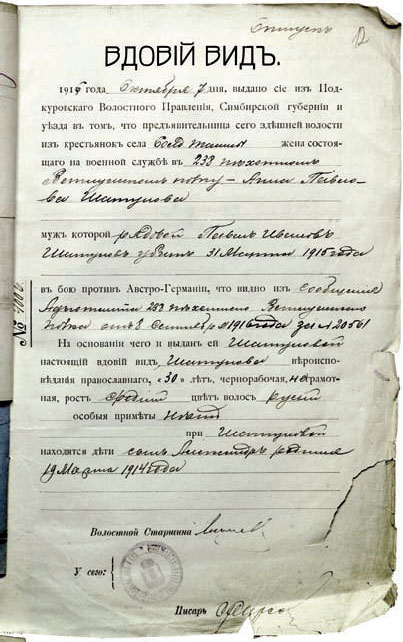 Отпускъ
12
ВДОВІЙ ВИДЪ.
191 года Октября 7 дня, выдано сіе изъ Под-
куровскаго Волостного Правленія, Симбирской губерніи и
уѣзда въ томъ, что предъявительница сего здѣшней волости
изъ крестьянокъ села жена состоя-
щаго на военной службѣ въ 233 пѣхотномъ
полку – Анна Павло-
ва Шатунова
мужъ которой рядовой Павелъ Ивановъ
Шатуновъ убитъ 31 Марта 1915 года
въ бою противъ Австро-Германіи, что видно изъ сообщенія
Адъютанта 233 пѣхотнаго
полка отъ 8 Сентября 1916 года за № 20561
На основаніи чего и выданъ ей Шатуновой
настоящій вдовій видъ, Шатунова вѣроиспо-
вѣданія православнаго, «30» лѣтъ, чернорабочая, неграмот-
ная, ростъ средній цвѣтъ волосъ русый
особыя примѣты нѣтъ
при Шатуновой
находятся дѣти сынъ Александръ родился
19 Марта 1914 года
Волостной Старшина
У сего:
Писарь
№